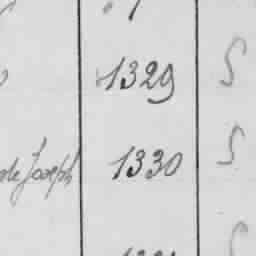 1329 S
de Joseph 1330 S
S